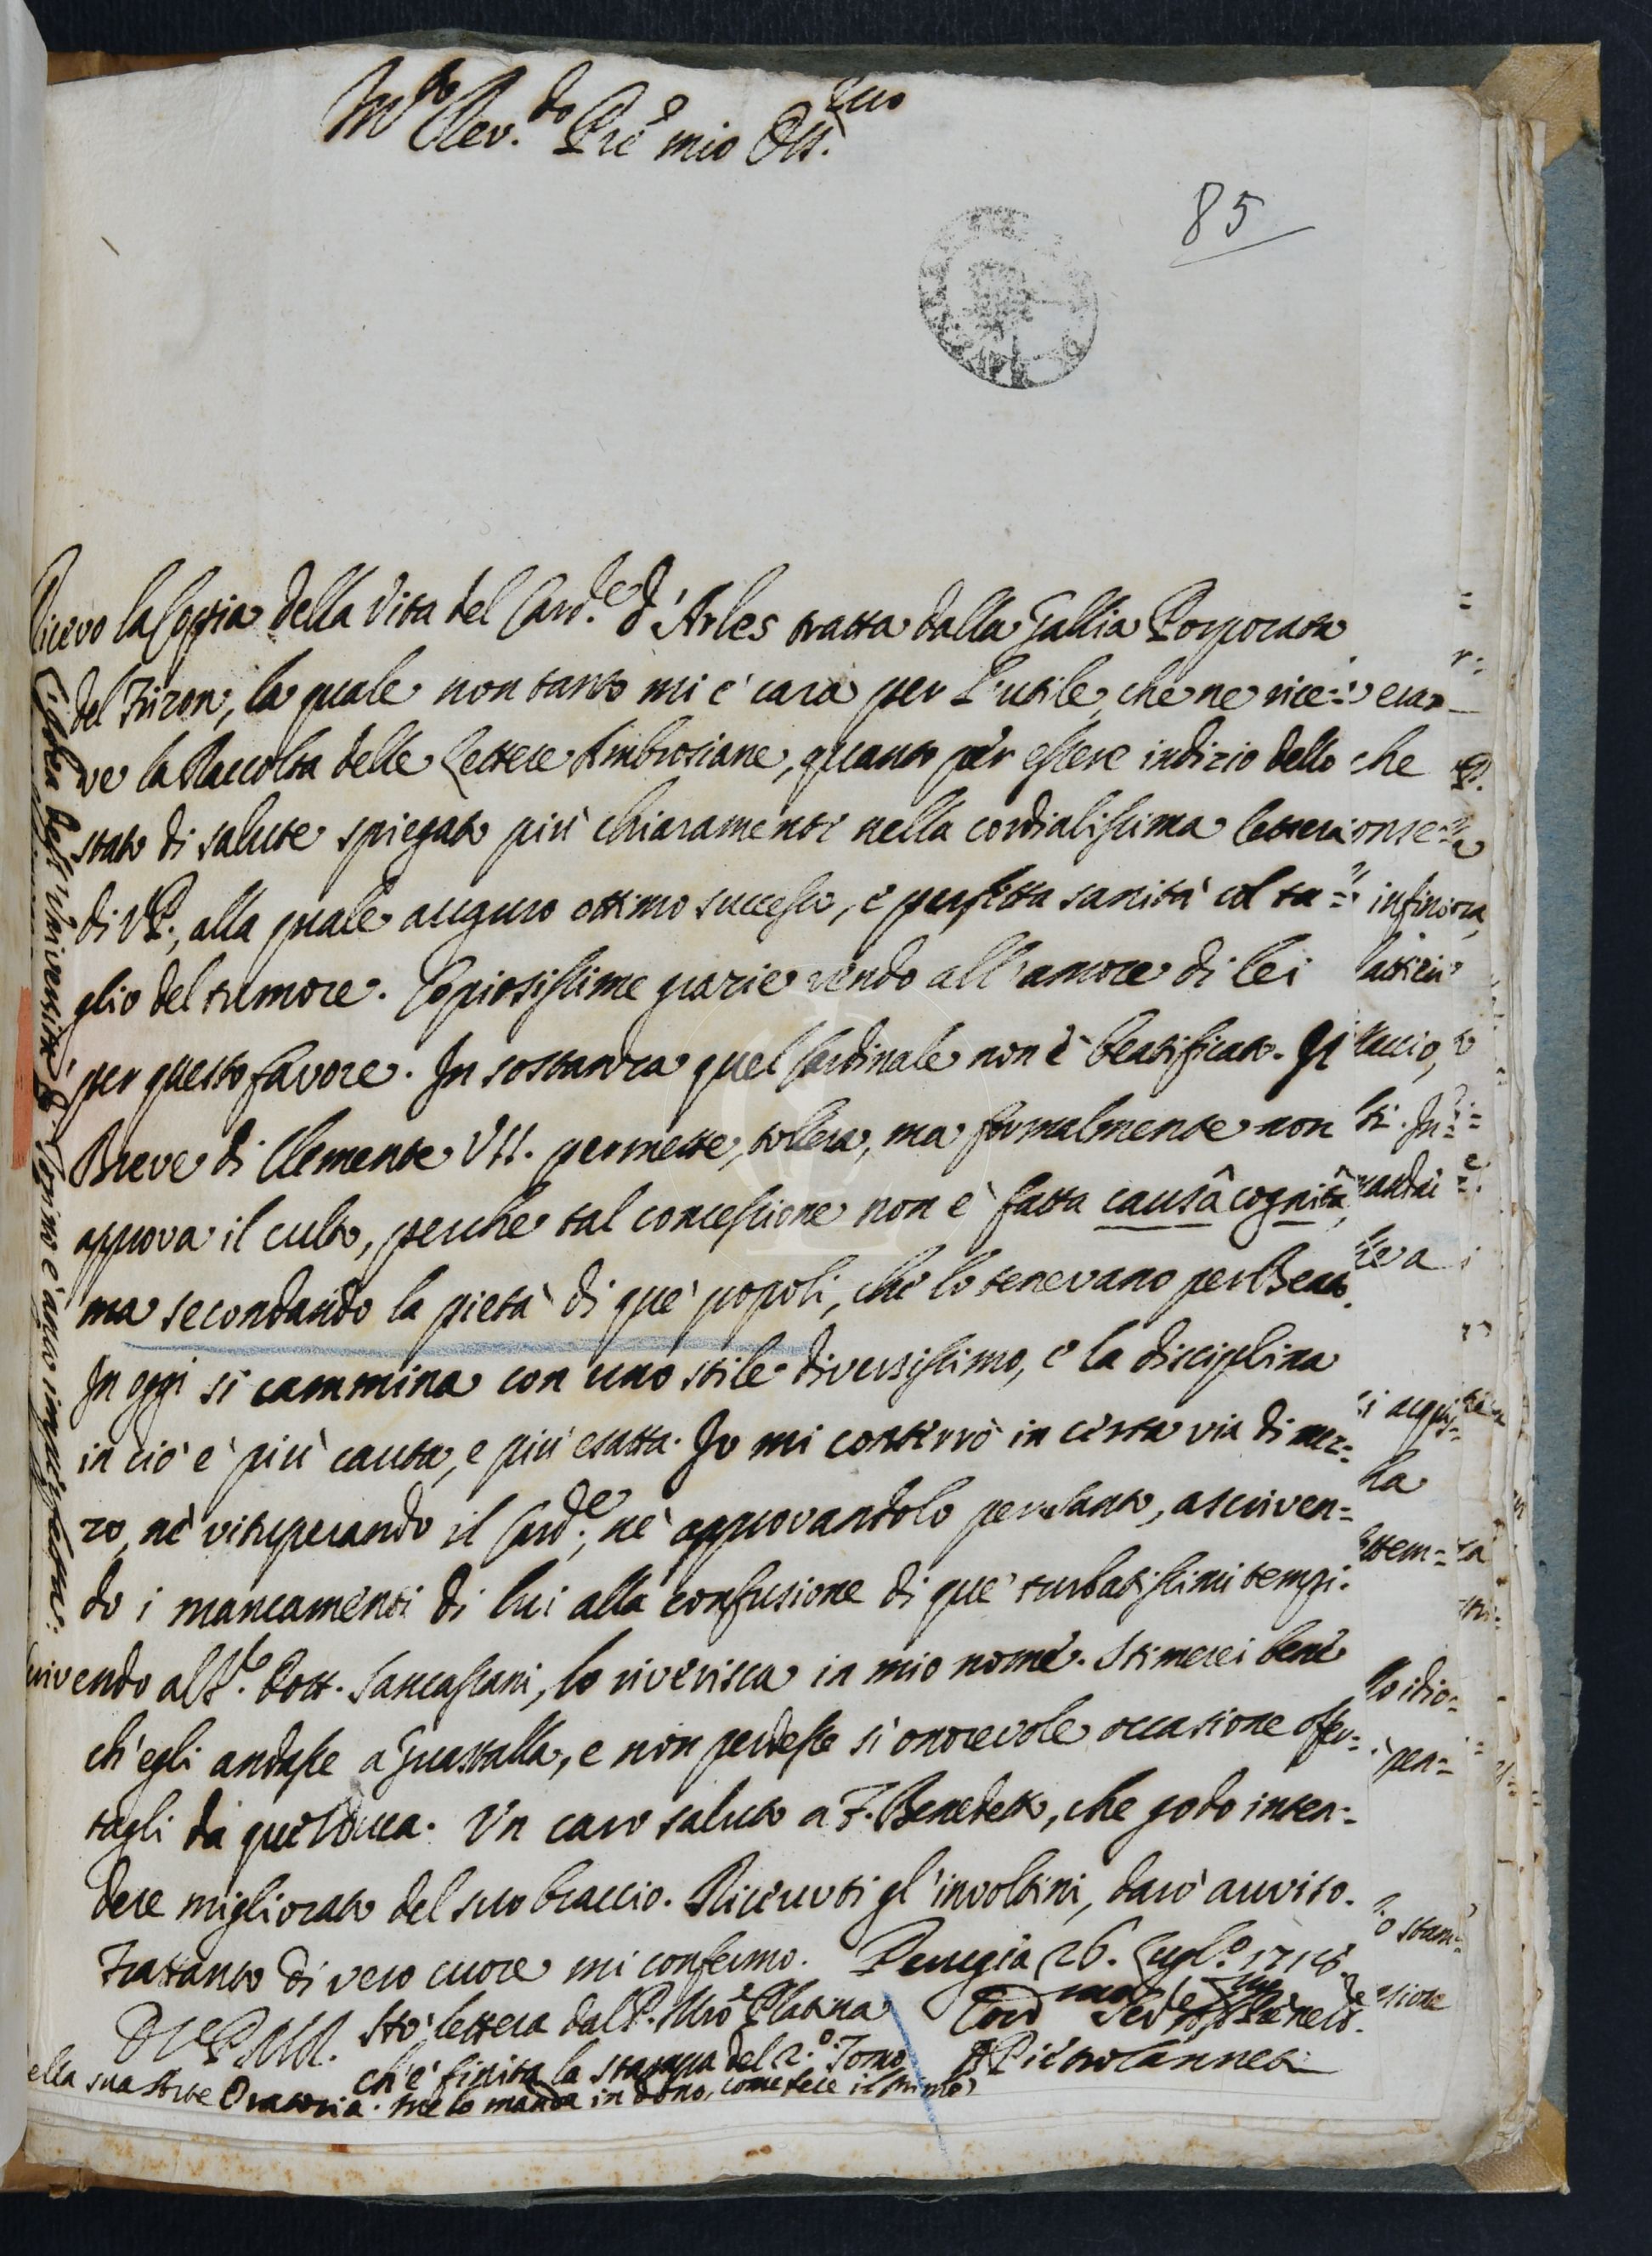 M.to Rev.do Prē mio Oss.mo
85
Ricevo la Coppia della Vita del Card.e d'Arles tratta dalla Gallia Porporata
del Frizon, la quale non tanto mi è cara per l'utile, che ne rice=
ve la Raccolta delle Lettere Ambrosiane, quanto per essere indizio dello
stato di salute spiegato più chiaramente nella cordialissima lettera
di V.P., alla quale auguro ottimo successo, e perfetta sanità col ta=
glio del tumore. Copiosissime grazie rendo all'amore di lei
per questo favore. In sostanza quel Cardinale non è beatificato. Il
Breve di Clemente VII. permette, tollera, ma formalmente non
approva il culto, perche tal concessione non è fatta causâ cognitâ,
ma secondando la pietà di que' popoli, che lo tenevano per Beato.
In oggi si cammina con uno stile diversissimo, e la disciplina
in ciò è più cauta, e più esatta. Io mi conterrò in certa via di mez=
zo, nè vituperando il Card.e, nè approvandolo per santo, ascriven=
do i mancamenti di lui alla confusione di que' turbatissimi tempi.
Scrivendo al S.r Dott. Sancassani, lo riverisca in mio nome. Stimerei bene
ch'egli andasse a Guastalla, e non perdesse sì onorevole occasione offer=
tagli da quel Duca. Un caro saluto a F. Benedetto, che godo inten=
dere migliorato del suo braccio. Ricevuti gl'involtini, darò avviso.
Frattanto di vero cuore mi confermo. Perugia 26. Lugl.o 1718.
D V P M R. Hò lettera dal P. Mrō Platina
ch'è finita la stampa del 2.o Tomo
della sua Arte Oratoria. me lo manda in dono, come fece il primo
D Pietro Canneti
L'Idea dell'Università di Torino è anco imperfetta.